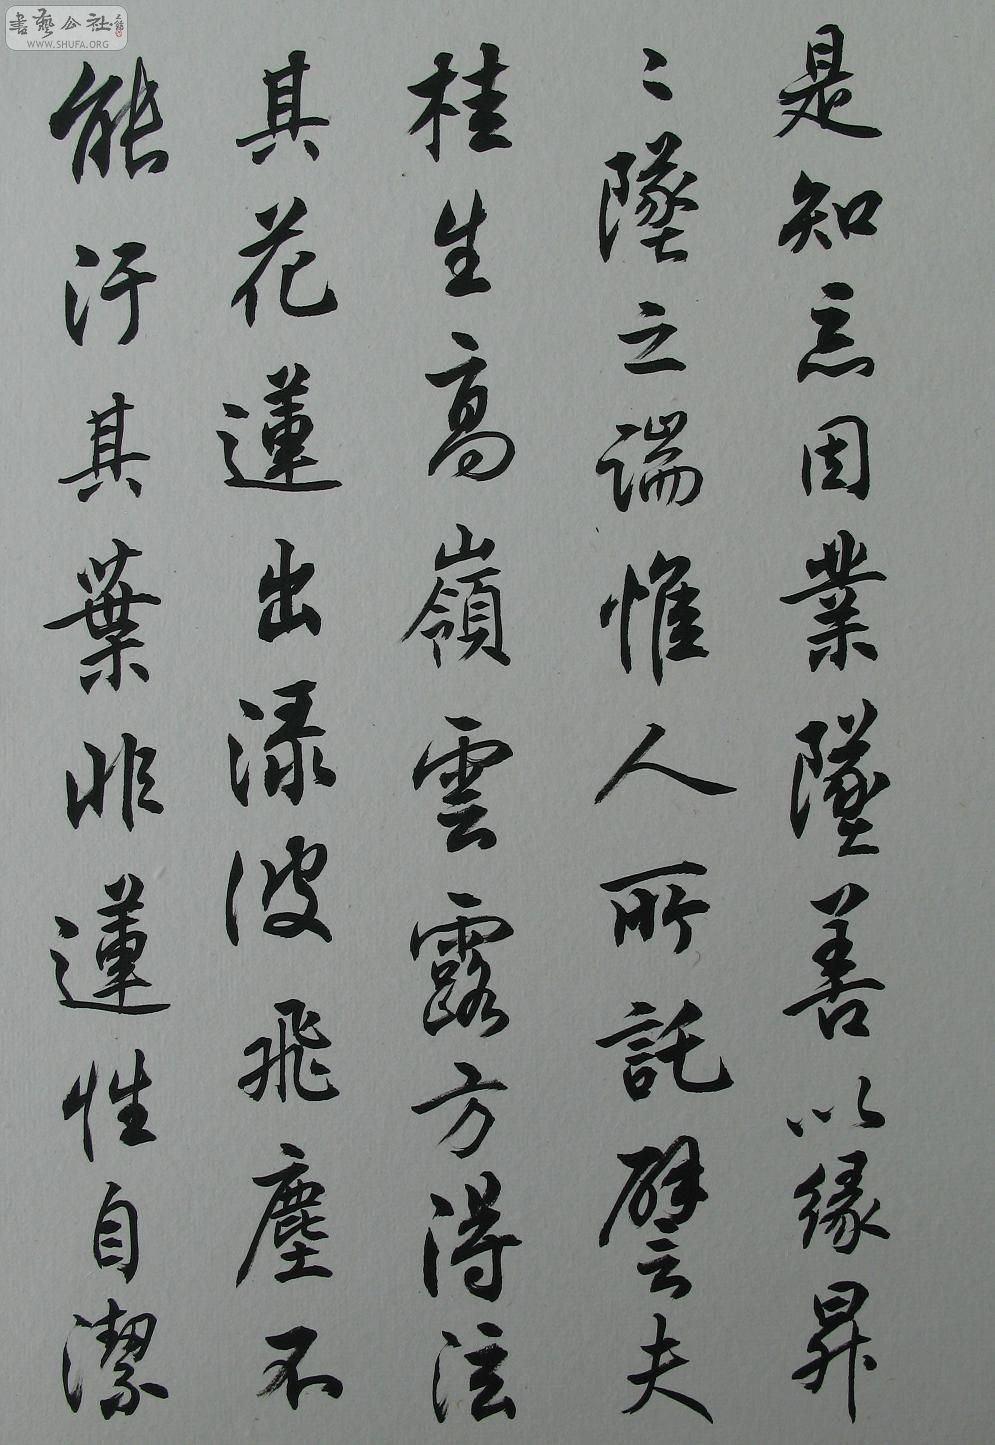 是知惡因業墜善以緣昇
〻墜之端惟人所託譬夫
桂生高嶺雲露方得泫
其花蓮出淥波飛塵不
能汙其葉非蓮性自潔
書藝公社
WWW.SHUFA.ORG